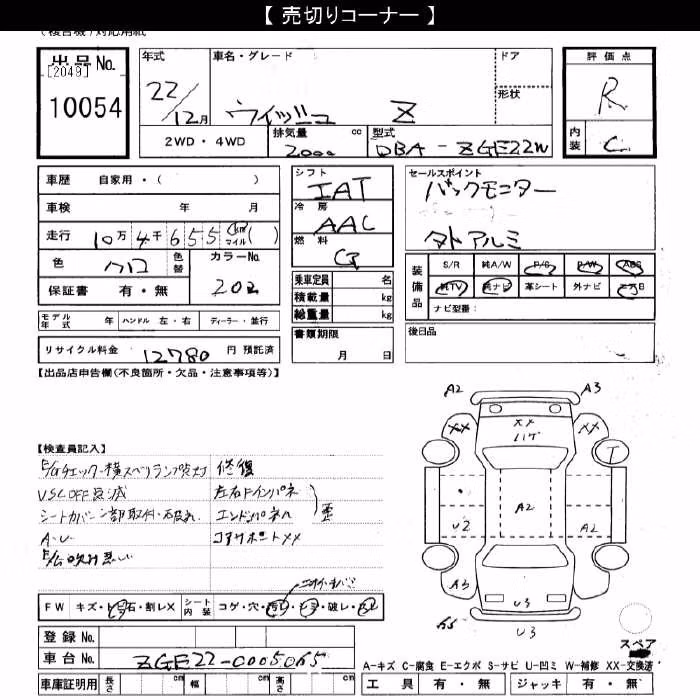 【 売切りコーナー 】
(複合機) 対応用紙
出品No.
[2049]
10054
年式
22/12月
車名・グレード
ウィッシュ Z
ドア
形状
2WD・4WD
排気量 cc
2000
型式
DBA-ZGE22W
評価点
R
内装
C
車歴 自家用・( )
車検 年 月
走行 10万4千655 km マイル ( )
色 クロ
色替
カラーNo.
202
保証書 有・無
モデル年式 年 ハンドル 左・右 ディーラー・並行
リサイクル料金 12780 円 預託済
シフト
IAT
冷房
AAC
燃料
G
乗車定員 名
積載量 kg
総重量 kg
書類期限
月 日
セールスポイント
バックモニター
タトアルミ
装備品
S/R 純A/W P/S P/W ABS
純TV 純ナビ 革シート 外ナビ エアB
ナビ型番:
後日品
【出品店申告欄(不良箇所・欠品・注意事項等)】
【検査員記入】
E/Gチェック・横スベリランプ点灯
VSC OFF点滅
A・U
修復
左右Fインパネ
エンドパネル
歪
コアサポートXX
FW キズ・ヒビ石・割レX
シート内装 コゲ・穴・汚レ・シミ・破レ・スレ
登録No.
車台No. ZGE22-0005065
車庫証明用 長さ cm 幅 cm 高さ cm
A2 A3
XX XX XX
ハゲ
T
U2 A2 A2
A3 A2
U3
U3
スペア
A-キズ C-腐食 E-エクボ S-サビ U-凹ミ W-補修 XX-交換済
工具 有・無 ジャッキ 有・無